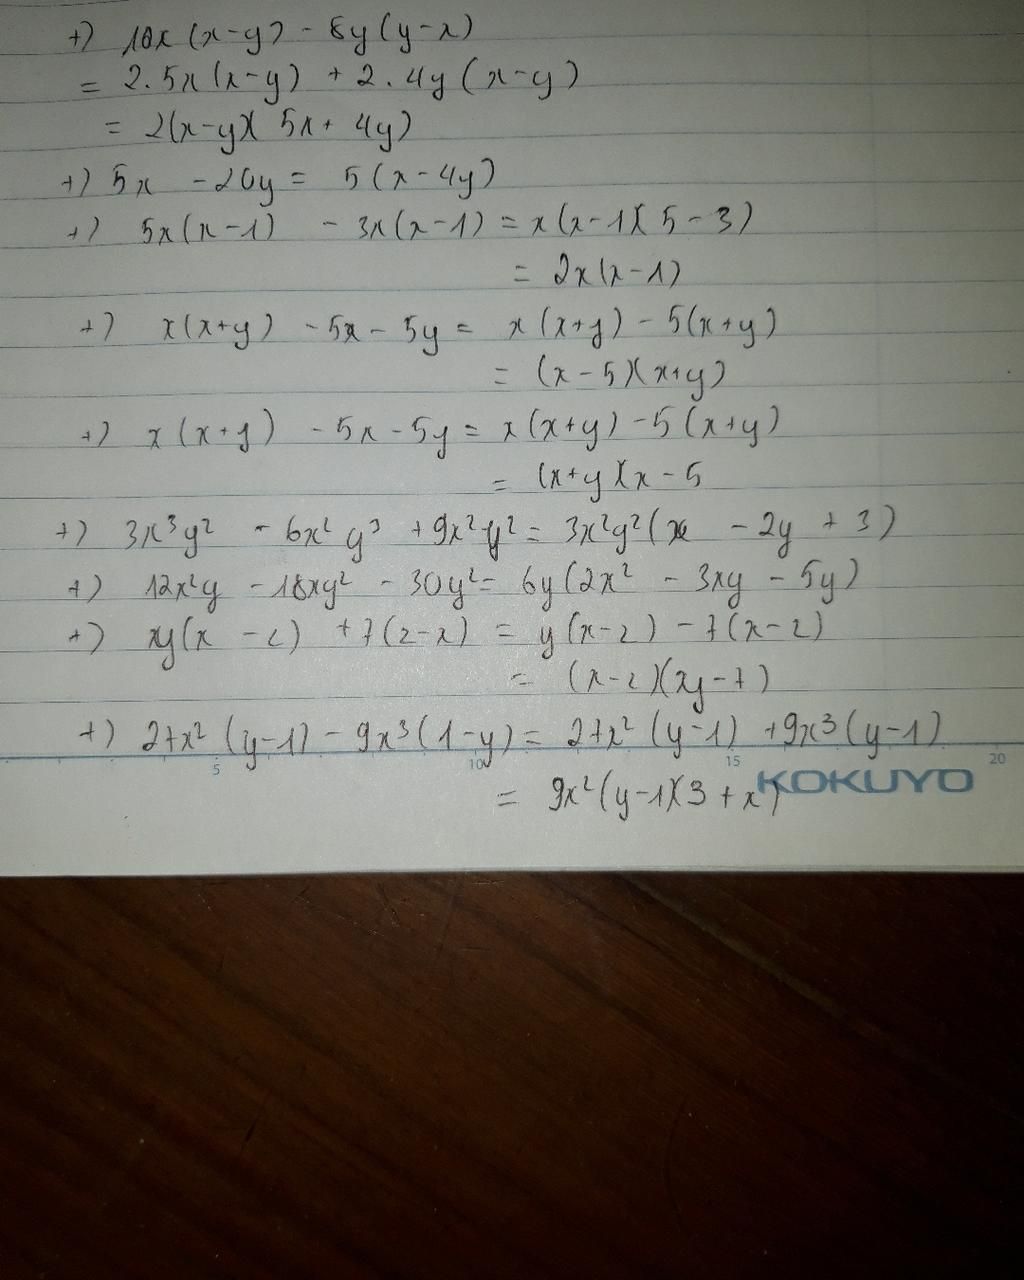 +) 10x(x-y) - 8y(y-x)
= 2.5x(x-y) + 2.4y(x-y)
= 2(x-y)(5x+4y)
+) 5x - 20y = 5(x-4y)
+) 5x(x-1) - 3x(x-1) = x(x-1)(5-3)
= 2x(x-1)
+) x(x+y) - 5x - 5y = x(x+y) - 5(x+y)
= (x-5)(x+y)
+) x(x+y) - 5x - 5y = x(x+y) - 5(x+y)
= (x+y)(x-5
+) 3x³y² - 6x²y³ + 9x²y² = 3x²y²(x - 2y + 3)
+) 12x²y - 18xy² - 30y² = 6y(2x² - 3xy - 5y)
+) xy(x-z) + 7(z-x) = y(x-z) - 7(x-z)
= (x-z)(xy-7)
+) 27x²(y-1) - 9x³(1-y) = 27x²(y-1) + 9x³(y-1)
5 10 15 20
= 9x²(y-1)(3+x) KOKUYO